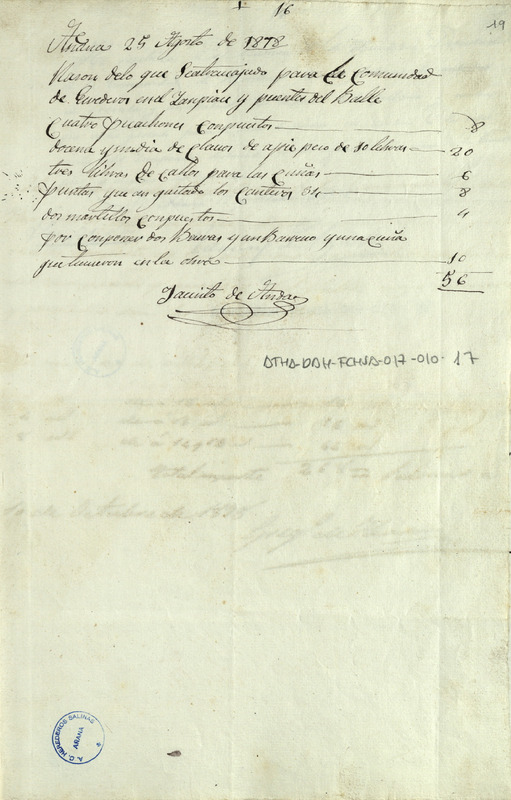 16
19
Anana 25 Agosto de 1878
Rason delo que Seatrauajado para la Comunidad
de Erederos enel Lanpiau y puentes del Balle
Cuatro puachones Conpuestos 8
docena y media de Clauos de apie peso de 10 libras 20
tres libras de Callos para las Cuñas 6
puntas que an gastado los Canteros 34 8
dos martillos Conpuestos 4
por Componer dos Barras y un Bareno y una Cuña
que tuuieron en la obra 10
56
Jacinto de Andao
ATHA-DAH-FCHSA-017-010-17
A.C. HEREDEROS SALINAS
AÑANA